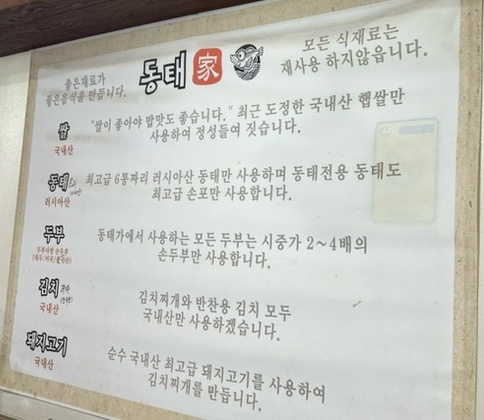 좋은재료가
좋은음식을 만듭니다.
동태 家
모든 식재료는
재사용 하지않읍니다.
쌀
국내산
"쌀이 좋아야 밥맛도 좋습니다." 최근 도정한 국내산 햅쌀만
사용하여 정성들여 짓습니다.
동태
러시아산
최고급 6통짜리 러시아산 동태만 사용하며 동태전용 동태도
최고급 손포만 사용합니다.
두부
두부사랑 손두부
동태가에서 사용하는 모든 두부는 시중가 2~4배의
손두부만 사용합니다.
김치
국내산
김치찌개와 반찬용 김치 모두
국내산만 사용하겠습니다.
돼지고기
국내산
순수 국내산 최고급 돼지고기를 사용하여
김치찌개를 만듭니다.